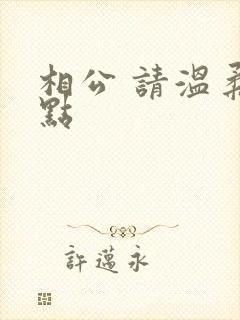 相公 請溫柔
點
許邁永